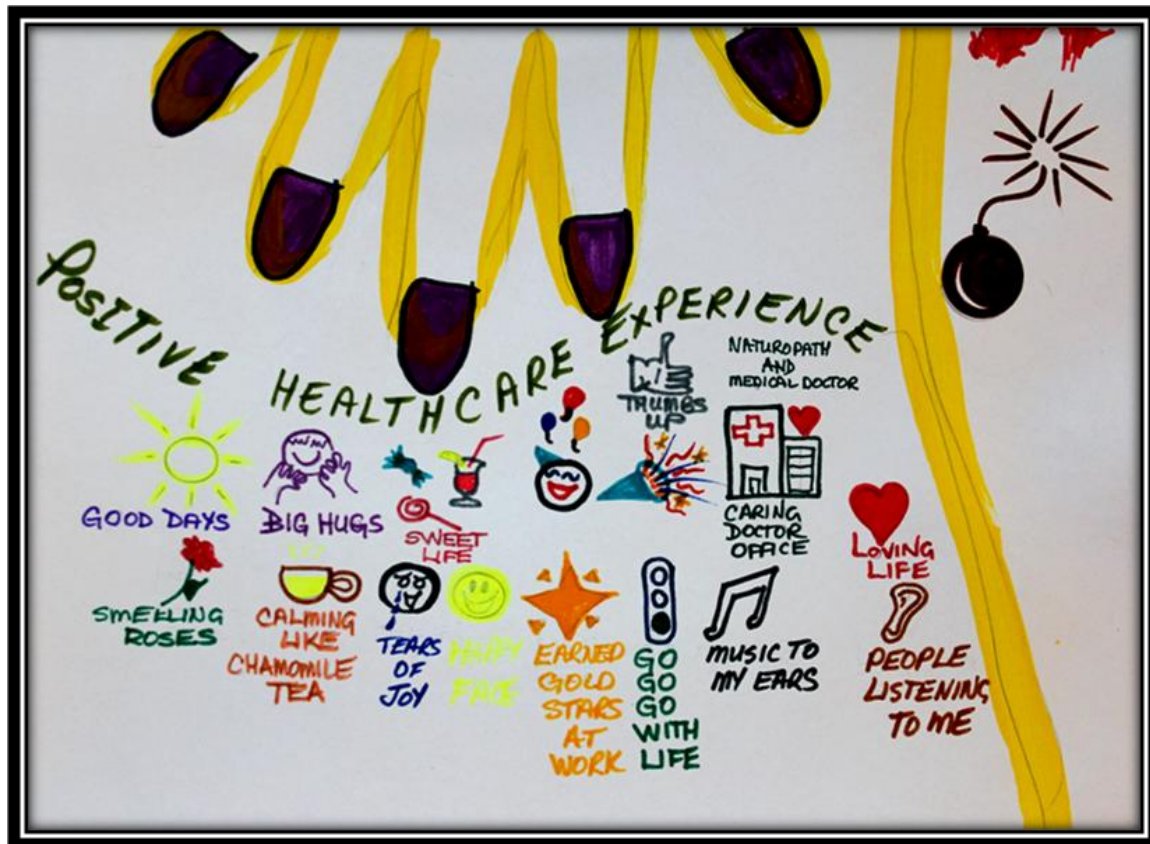 POSITIVE
HEALTHCARE
EXPERIENCE
THUMBS
UP
NATUROPATH
AND
MEDICAL DOCTOR
GOOD DAYS
BIG HUGS
SWEET
LIFE
CARING
DOCTOR
OFFICE
LOVING
LIFE
SMELLING
ROSES
CALMING
LIKE
CHAMOMILE
TEA
TEARS
OF
JOY
HAPPY
FACE
EARNED
GOLD
STARS
AT
WORK
GO
GO
GO
WITH
LIFE
MUSIC TO
MY EARS
PEOPLE
LISTENING
TO ME